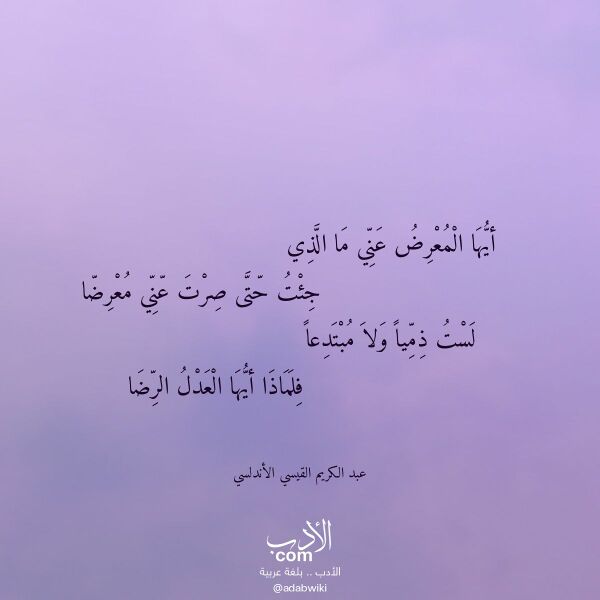 أَيُّهَا الْمُعْرِضُ عَنِّي مَا الَّذِي
جِئْتُ حّتَّى صِرْتَ عّنِّي مُعْرِضّا
لَسْتُ ذِمِّياً وَلاَ مُبْتَدِعاً
فِلَمَاذَا أيُّهَا الْعَدْلُ الرِّضَا
عبد الكريم القيسي الأندلسي
الأدب
.com
الأدب .. بلغة عربية
@adabwiki